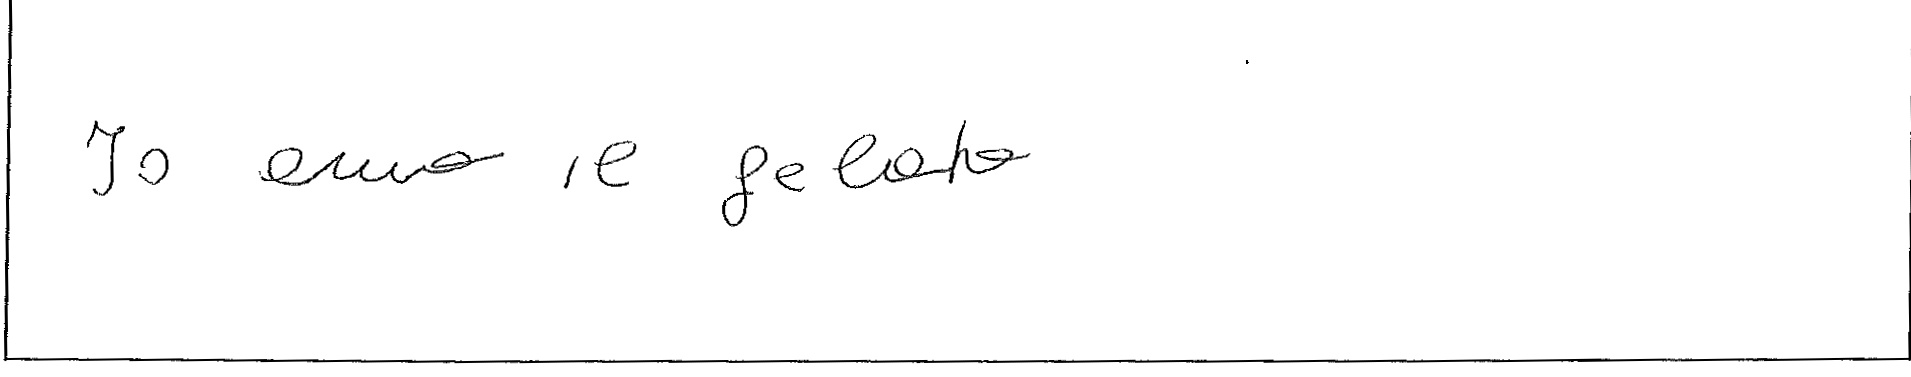 Io amo il gelato